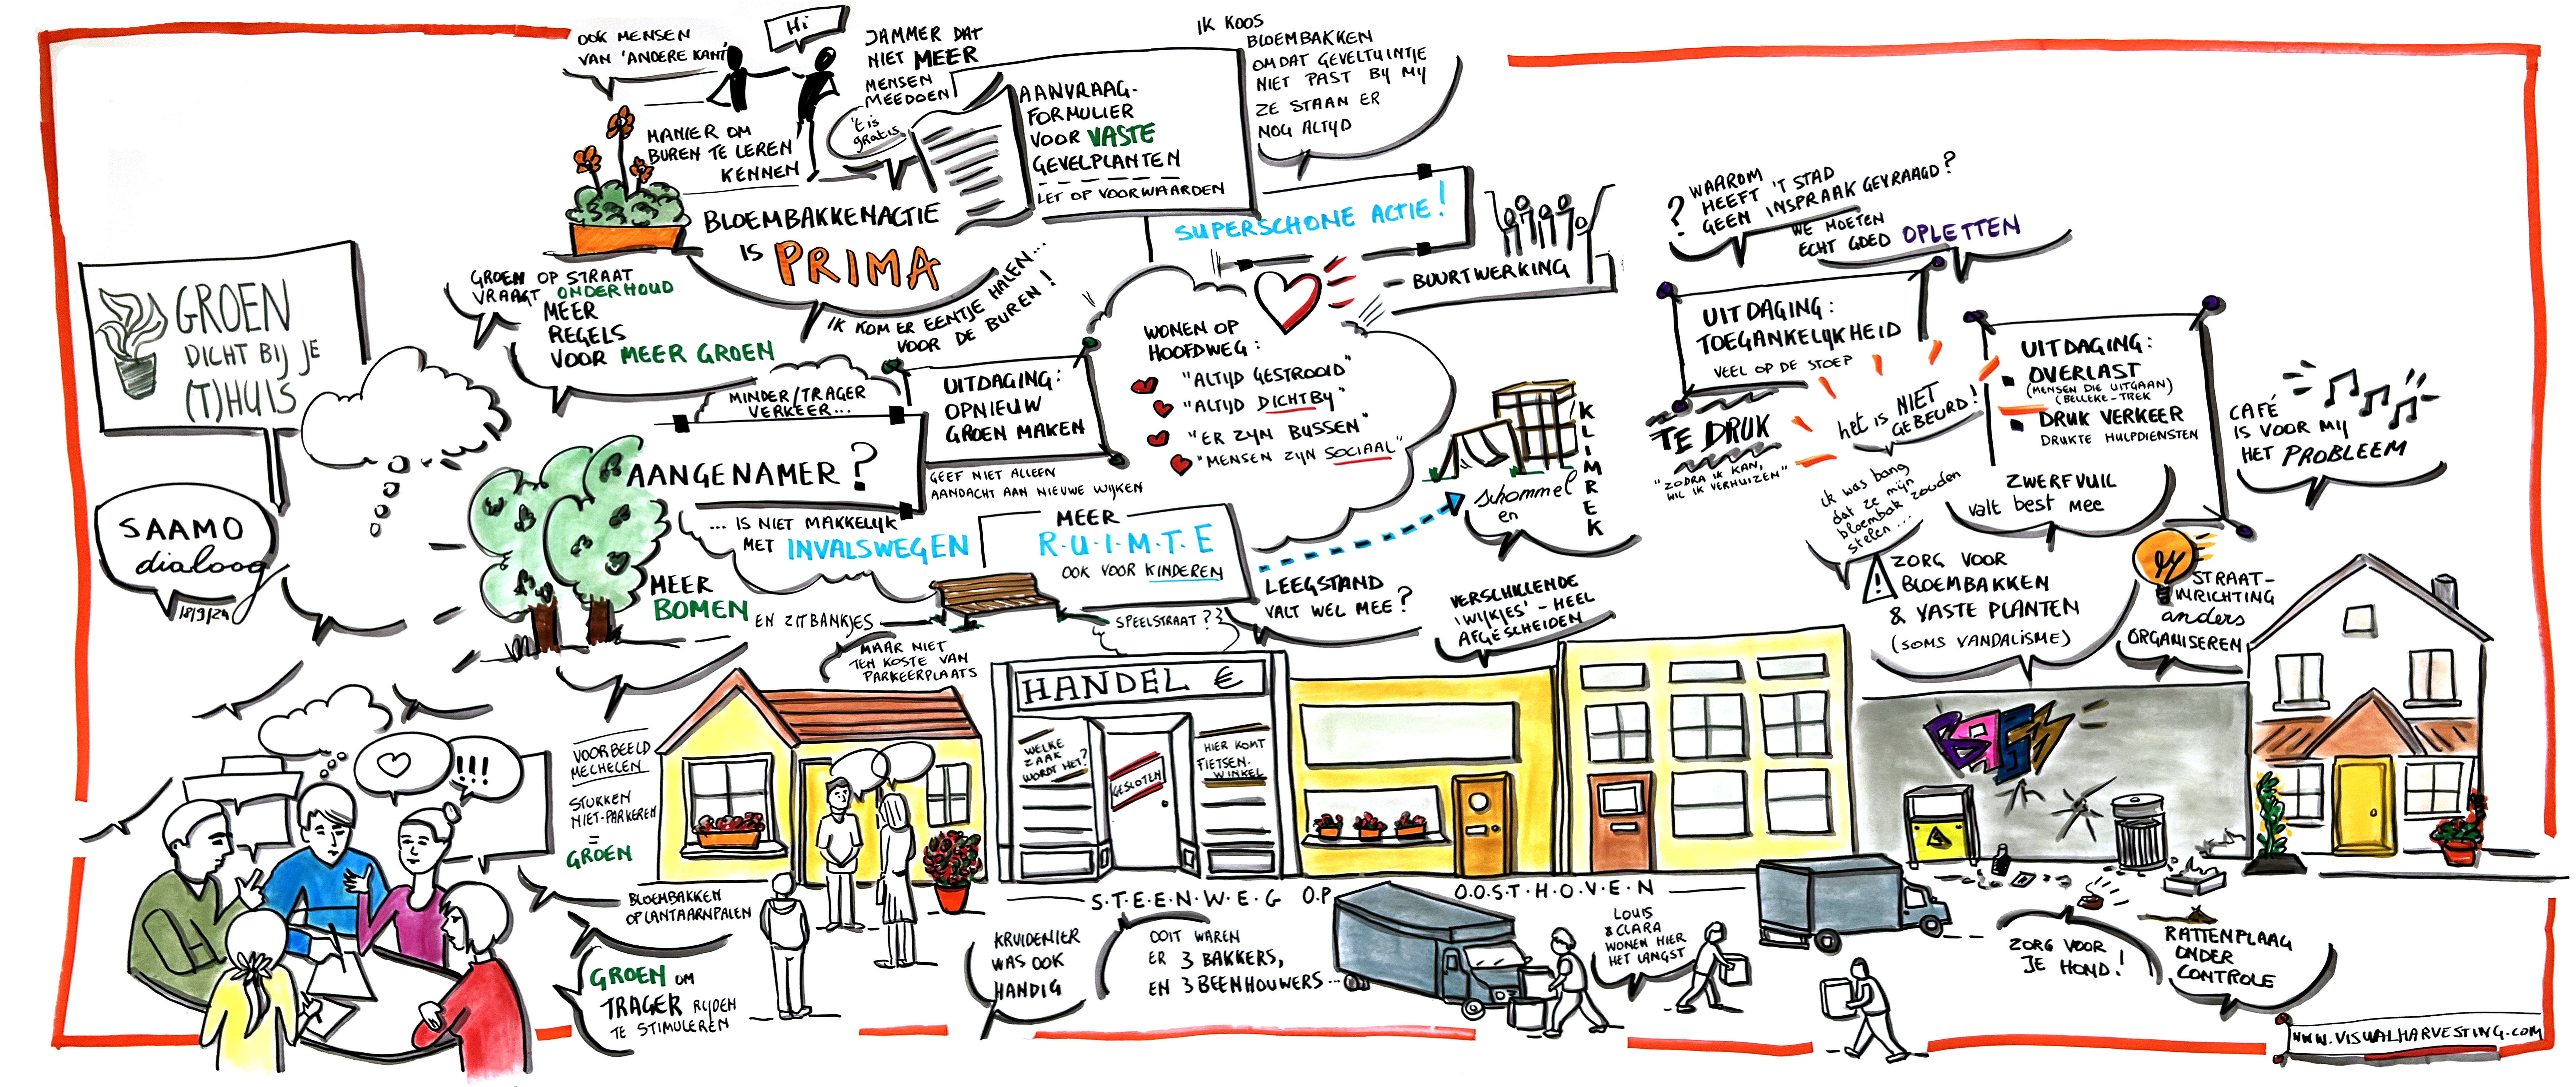 GROEN
DICHT BIJ JE
(T)HUIS
SAAMO
dialoog
18/9/24
OOK MENSEN
VAN 'ANDERE KANT'
Hi
MANIER OM
BUREN TE LEREN
KENNEN
JAMMER DAT
NIET MEER
MENSEN
MEEDOEN
't is
gratis
BLOEMBAKKENACTIE
IS PRIMA
AANVRAAG-
FORMULIER
VOOR VASTE
GEVELPLANTEN
LET OP VOORWAARDEN
IK KOOS
BLOEMBAKKEN
OMDAT GEVELTUINTJE
NIET PAST BIJ MIJ
ZE STAAN ER
NOG ALTIJD
SUPERSCHONE ACTIE!
BUURTWERKING
IK KOM ER EENTJE HALEN...
VOOR DE BUREN!
GROEN OP STRAAT
VRAAGT ONDERHOUD
MEER
REGELS
VOOR MEER GROEN
MINDER/TRAGER
VERKEER...
AANGENAMER?
... IS NIET MAKKELIJK
MET INVALSWEGEN
UITDAGING:
OPNIEUW
GROEN MAKEN
GEEF NIET ALLEEN
AANDACHT AAN NIEUWE WIJKEN
WONEN OP
HOOFDWEG:
"ALTIJD GESTROOID"
"ALTIJD DICHTBIJ"
"ER ZIJN BUSSEN"
"MENSEN ZIJN SOCIAAL"
MEER
R.U.I.M.T.E
OOK VOOR KINDEREN
schommel
en
KLIMREK
MEER
BOMEN
EN ZITBANKJES
MAAR NIET
TEN KOSTE VAN
PARKEERPLAATS
SPEELSTRAAT??
LEEGSTAND
VALT WEL MEE?
VERSCHILLENDE
'WIJKJES' - HEEL
AFGESCHEIDEN
? WAAROM
HEEFT 'T STAD
GEEN INSPRAAK GEVRAAGD?
WE MOETEN
ECHT GOED OPLETTEN
UITDAGING:
TOEGANKELIJKHEID
VEEL OP DE STOEP
TE DRUK
"ZODRA IK KAN,
WIL IK VERHUIZEN"
het is NIET
GEBEURD!
ik was bang
dat ze mijn
bloembak zouden
stelen...
UITDAGING:
OVERLAST
(MENSEN DIE UITGAAN)
(BELLEKE-TREK)
DRUK VERKEER
DRUKTE HULPDIENSTEN
ZWERFVUIL
valt best mee
CAFÉ
IS VOOR MIJ
HET PROBLEEM
ZORG VOOR
BLOEMBAKKEN
& VASTE PLANTEN
(SOMS VANDALISME)
STRAAT-
INRICHTING
anders
ORGANISEREN
!!!
VOORBEELD
MECHELEN
STUKKEN
NIET-PARKEREN
=
GROEN
BLOEMBAKKEN
OP LANTAARNPALEN
GROEN OM
TRAGER RIJDEN
TE STIMULEREN
HANDEL €
WELKE
ZAAK
WORDT HET?
GESLOTEN
HIER KOMT
FIETSEN-
WINKEL
S.T.E.E.N.W.E.G O.P O.O.S.T.H.O.V.E.N
KRUIDENIER
WAS OOK
HANDIG
OOIT WAREN
ER 3 BAKKERS,
EN 3 BEENHOUWERS...
LOUIS
& CLARA
WONEN HIER
HET LANGST
ZORG VOOR
JE HOND!
RATTENPLAAG
ONDER
CONTROLE
WWW.VISUALHARVESTING.COM